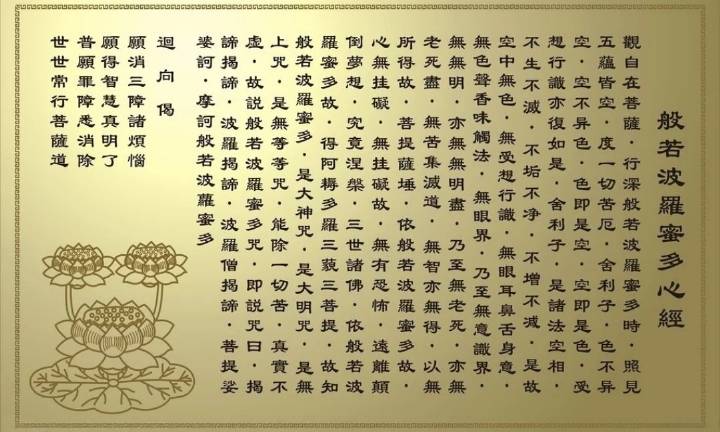 般若波羅蜜多心經
觀自在菩薩·行深般若波羅蜜多時·照見
五蘊皆空·度一切苦厄·舍利子·色不异
空·空不异色·色即是空·空即是色·受
想行識亦復如是·舍利子·是諸法空相·
不生不滅·不垢不净·不增不减·是故
空中無色·無受想行識·無眼耳鼻舌身意·
無色聲香味觸法·無眼界·乃至無意識界·
無無明·亦無無明盡·乃至無老死·亦無
老死盡·無苦集滅道·無智亦無得·以無
所得故·菩提薩埵·依般若波羅蜜多故·
心無挂礙·無挂礙故·無有恐怖·遠離顛
倒夢想·究竟涅槃·三世諸佛·依般若波
羅蜜多故·得阿耨多羅三藐三菩提·故知
般若波羅蜜多·是大神咒·是大明咒·是無
上咒·是無等等咒·能除一切苦·真實不
虛·故説般若波羅蜜多咒·即説咒曰·揭
諦揭諦·波羅揭諦·波羅僧揭諦·菩提娑
婆訶·摩訶般若波羅蜜多
迴向偈
願消三障諸煩惱
願得智慧真明了
普願罪障悉消除
世世常行菩薩道